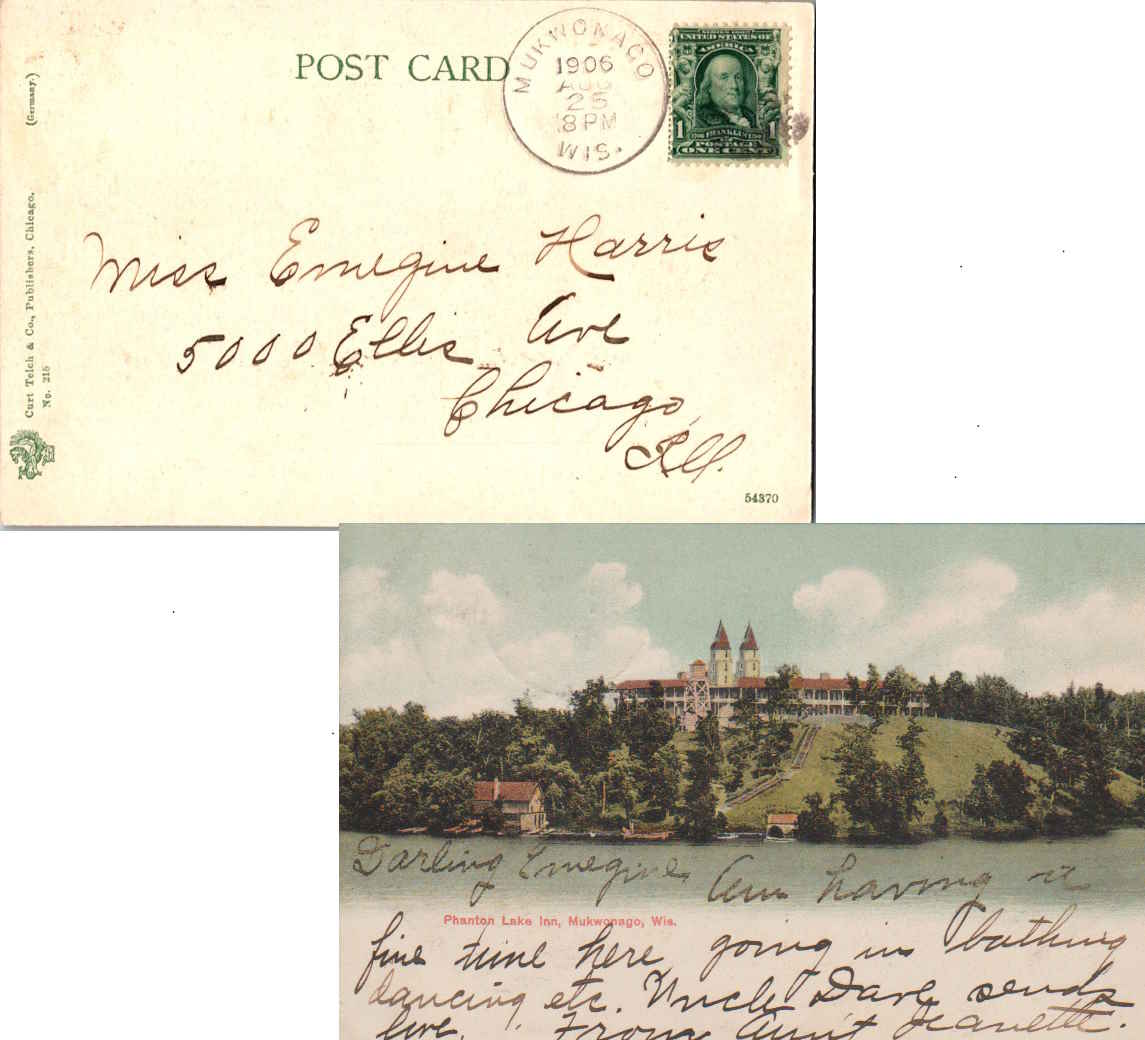 POST CARD
MUKWONAGO
1906
AUG
25
8 PM
WIS.
SERIES 1902
UNITED STATES OF
AMERICA
1 FRANKLIN 1
POSTAGE
ONE CENT
(Germany.)
Curt Teich & Co., Publishers, Chicago.
No. 215
Miss Emegine Harris
5000 Ellis Ave
Chicago
Ill.
54370
Darling Emegine, Am having a
Phanton Lake Inn, Mukwonago, Wis.
fine time here, going in bathing
dancing etc. Uncle Dave sends
love. From Aunt Jeanette.